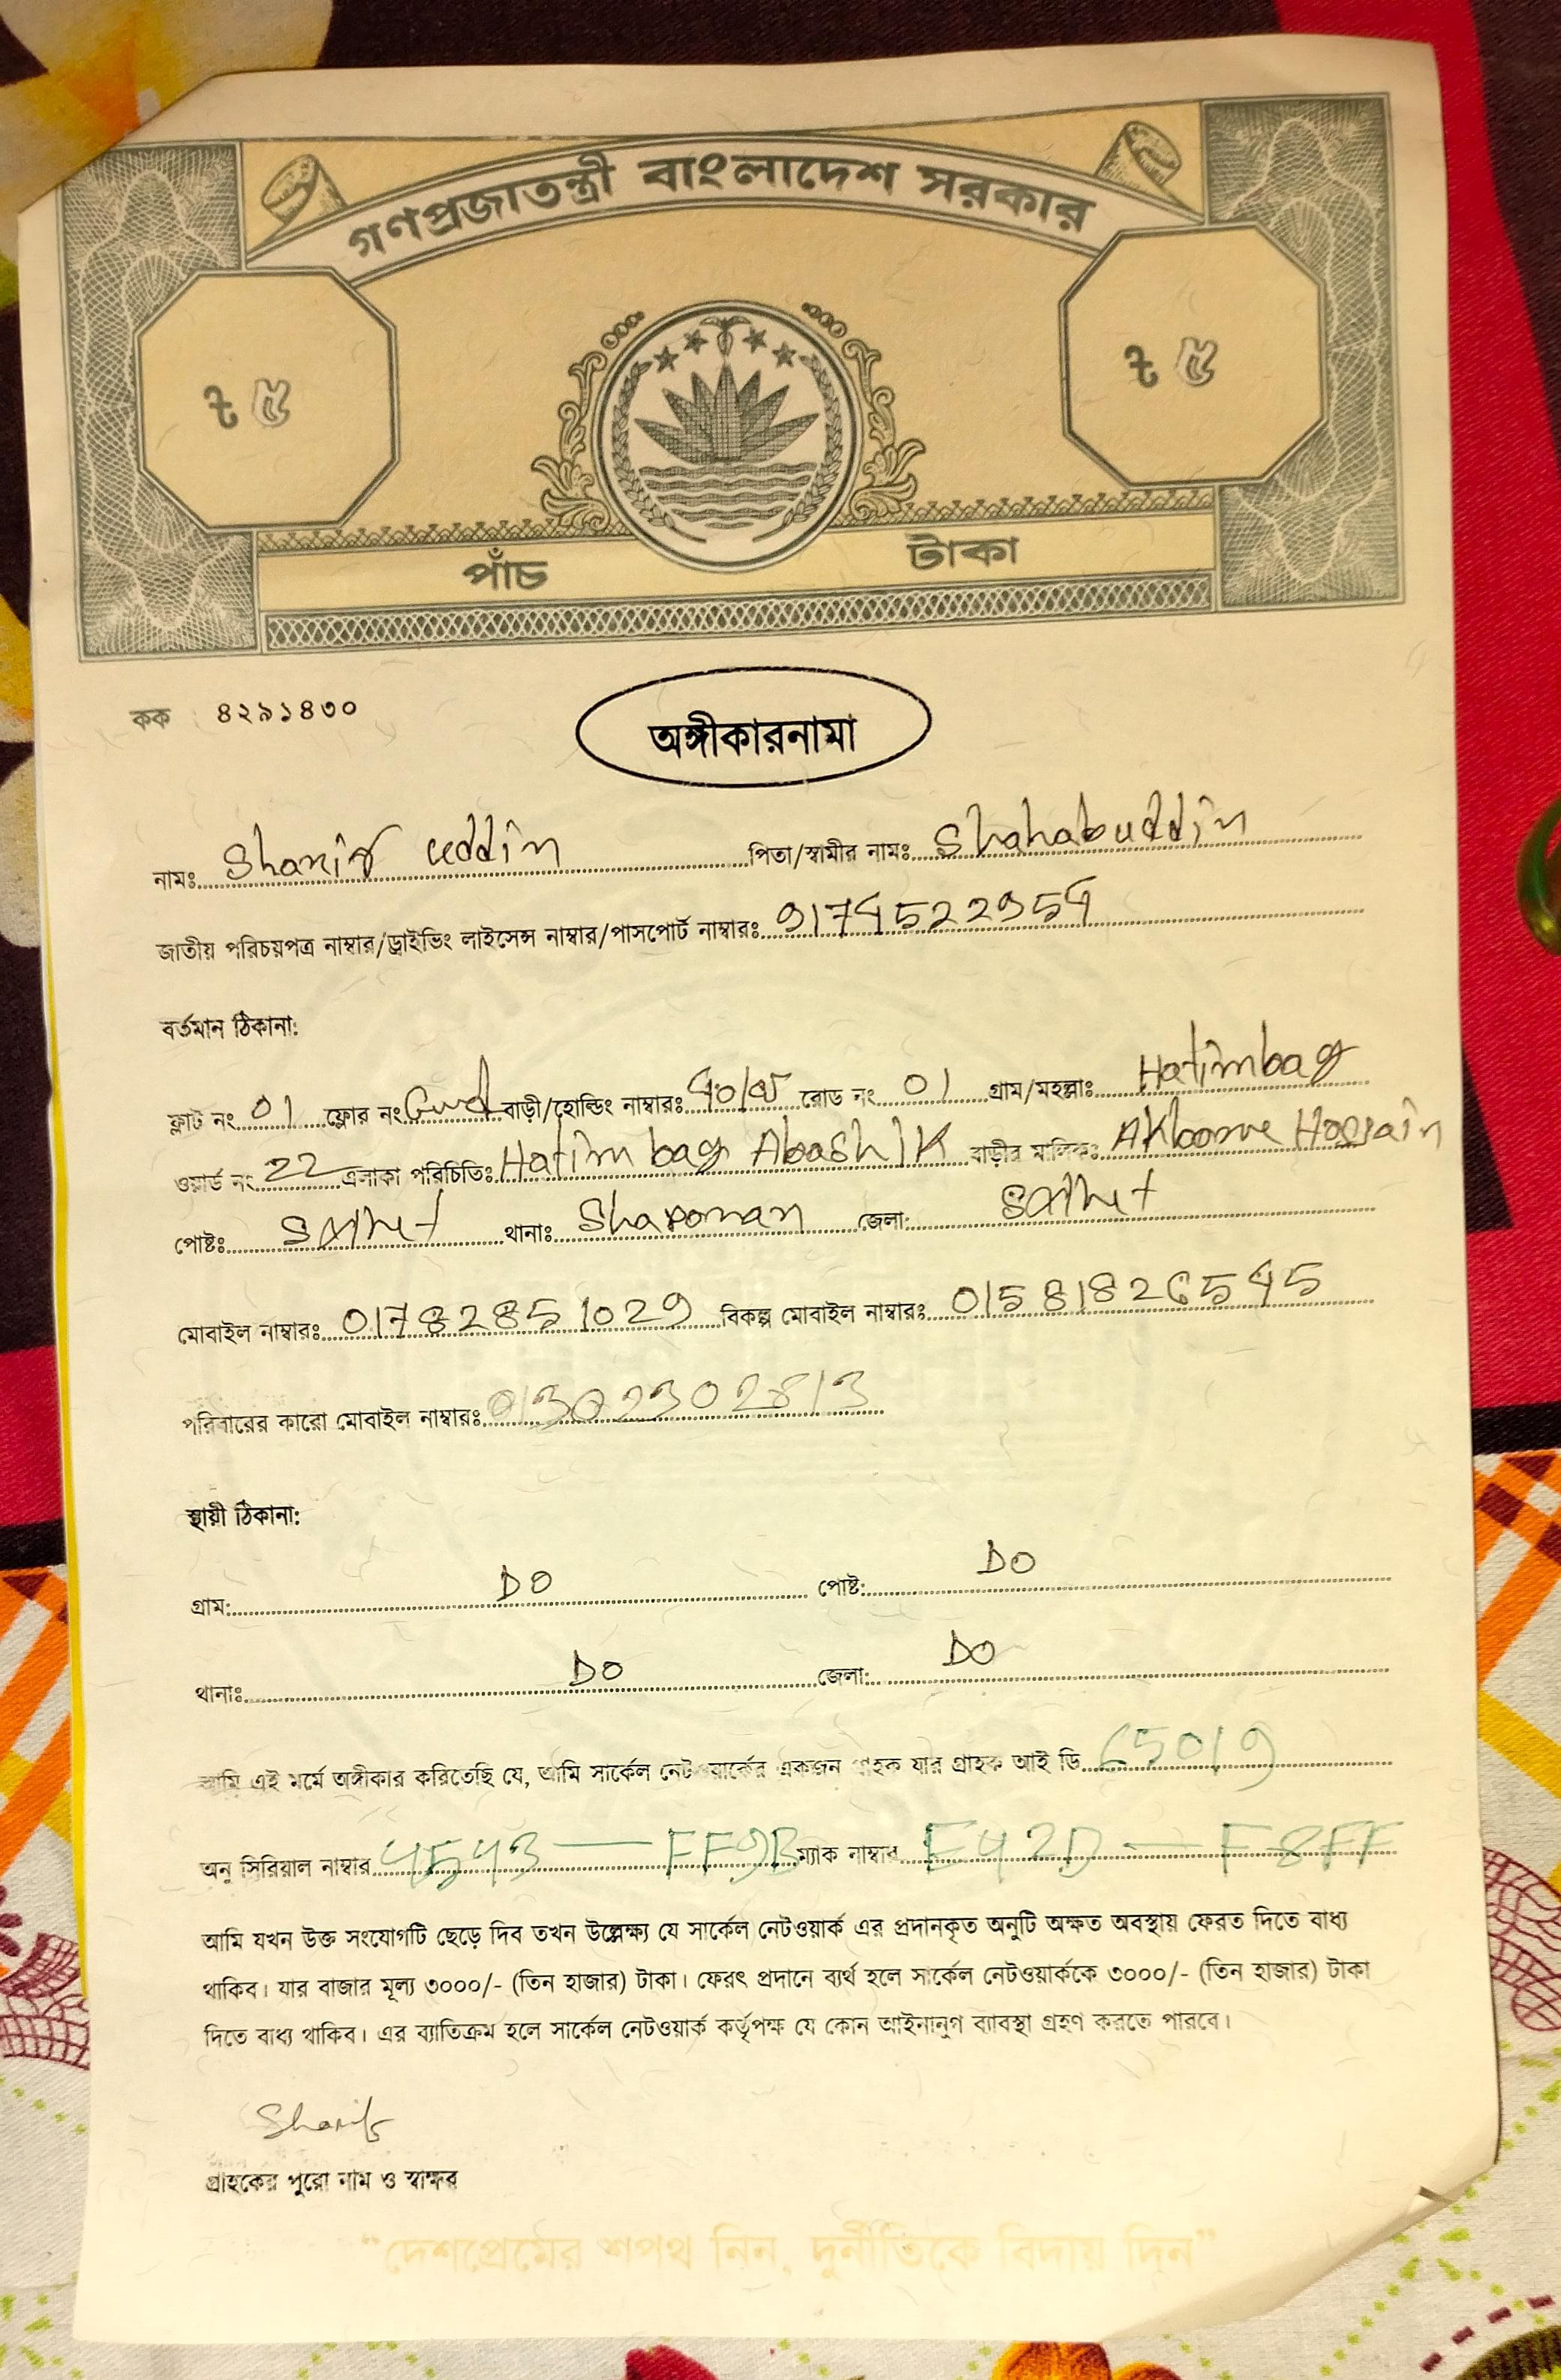 গণপ্রজাতন্ত্রী বাংলাদেশ সরকার
৳ ৫ ৳ ৫
পাঁচ টাকা
কক ৪২৯১৪৩০
অঙ্গীকারনামা
নামঃ Sharif uddin পিতা/স্বামীর নামঃ Shahabuddin
জাতীয় পরিচয়পত্র নাম্বার/ড্রাইভিং লাইসেন্স নাম্বার/পাসপোর্ট নাম্বারঃ 9174522954
বর্তমান ঠিকানা:
ফ্লাট নং 01 ফ্লোর নং বাড়ী/হোল্ডিং নাম্বারঃ রোড নং 01 গ্রাম/মহল্লাঃ Hatimbag
ওয়ার্ড নং 22 এলাকা পরিচিতিঃ Hatimbag Abashik বাড়ীর মালিকঃ Hossain
পোষ্টঃ থানাঃ জেলা:
মোবাইল নাম্বারঃ 01782851029 বিকল্প মোবাইল নাম্বারঃ 01581826545
পরিবারের কারো মোবাইল নাম্বারঃ 01302302813
স্থায়ী ঠিকানা:
গ্রাম: DO পোষ্ট: DO
থানাঃ DO জেলা: DO
আমি এই মর্মে অঙ্গীকার করিতেছি যে, আমি সার্কেল নেটওয়ার্কের একজন গ্রাহক যার গ্রাহক আই ডি 65019
অনু সিরিয়াল নাম্বার 4543 — FF9B ম্যাক নাম্বার E42D — F8FF
আমি যখন উক্ত সংযোগটি ছেড়ে দিব তখন উল্লেক্ষ্য যে সার্কেল নেটওয়ার্ক এর প্রদানকৃত অনুটি অক্ষত অবস্থায় ফেরত দিতে বাধ্য
থাকিব। যার বাজার মূল্য ৩০০০/- (তিন হাজার) টাকা। ফেরৎ প্রদানে ব্যর্থ হলে সার্কেল নেটওয়ার্ককে ৩০০০/- (তিন হাজার) টাকা
দিতে বাধ্য থাকিব। এর ব্যাতিক্রম হলে সার্কেল নেটওয়ার্ক কর্তৃপক্ষ যে কোন আইনানুগ ব্যাবস্থা গ্রহণ করতে পারবে।
Sharif
গ্রাহকের পুরো নাম ও স্বাক্ষর
“দেশপ্রেমের শপথ নিন, দুর্নীতিকে বিদায় দিন”